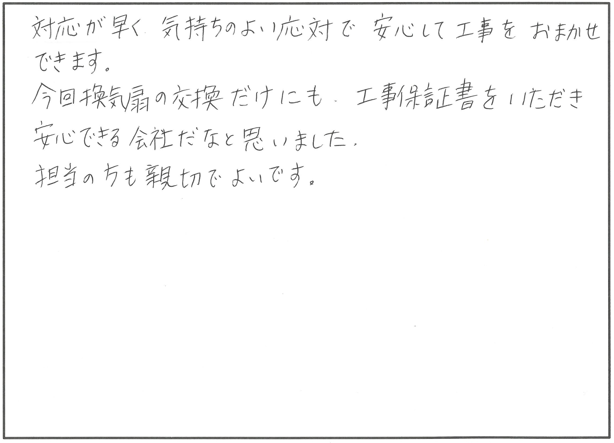 対応が早く 気持ちのよい応対で 安心して工事を おまかせ
できます。
今回換気扇の交換だけにも、工事保証書をいただき
安心できる会社だなと思いました。
担当の方も親切でよいです。